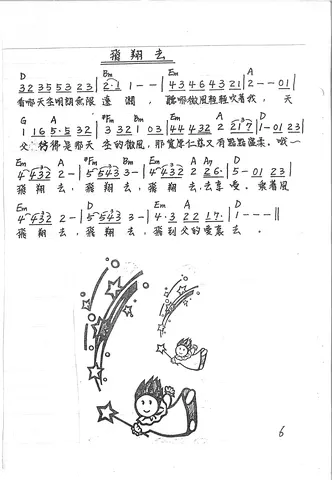 飛翔去
D Bm Em A
32 35 53 23 | 2·1 1 - - | 43 46 43 21 | 2 - - 01 |
看哪天空明朗無限遠濶，聽哪微風輕輕吹著我，天
G A #Fm Bm Em A D
1 16 5·5 32 | 3 332 1 03 | 44 432 2 217 | 1 - 01 23 |
父彷彿是那天空的微風，那寬厚仁慈又有點點溫柔，哦～
Em A #Fm Bm Em A A7 D
4 432 2 - | 5 543 3 - | 4 432 2 26· | 5 - 01 23 |
飛翔去，飛翔去，飛翔去，去享受。乘著風
Em A D Bm Em A D
4 432 2 - | 5 543 3 - | 4·3 22 17· | 1 - - - ‖
飛翔去，飛翔去，飛到父的愛裏去。
6